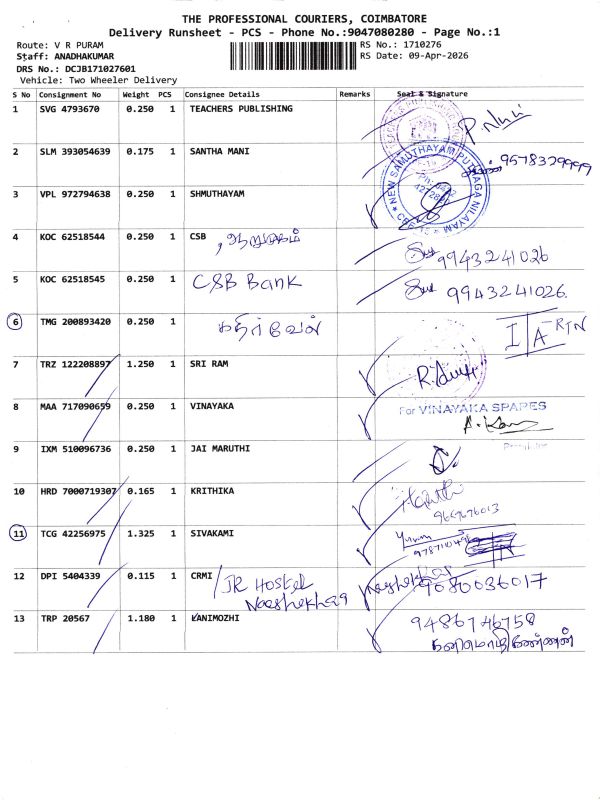 THE PROFESSIONAL COURIERS, COIMBATORE
Delivery Runsheet - PCS - Phone No.:9047080280 - Page No.:1
Route: V R PURAM
RS No.: 1710276
Staff: ANADHAKUMAR
RS Date: 09-Apr-2026
DRS No.: DCJB171027601
Vehicle: Two Wheeler Delivery
S No Consignment No Weight PCS Consignee Details Remarks Seal & Signature
1 SVG 4793670 0.250 1 TEACHERS PUBLISHING
2 SLM 393054639 0.175 1 SANTHA MANI 9578329999
NEW SAMUTHAYAM PUTHAGA NILAYAM
3 VPL 972794638 0.250 1 SHMUTHAYAM
4 KOC 62518544 0.250 1 CSB , ஆறுமுகம் 9943241026
5 KOC 62518545 0.250 1 CSB Bank 9943241026.
6 TMG 200893420 0.250 1 கதிர்வேன் I/A-RTN
7 TRZ 122208897 1.250 1 SRI RAM
8 MAA 717090659 0.250 1 VINAYAKA
For VINAYAKA SPARES
9 IXM 510096736 0.250 1 JAI MARUTHI
10 HRD 7000719307 0.165 1 KRITHIKA
11 TCG 42256975 1.325 1 SIVAKAMI
12 DPI 5404339 0.115 1 CRMI / JR Hostel 9080036017
13 TRP 20567 1.180 1 KANIMOZHI 9486746758